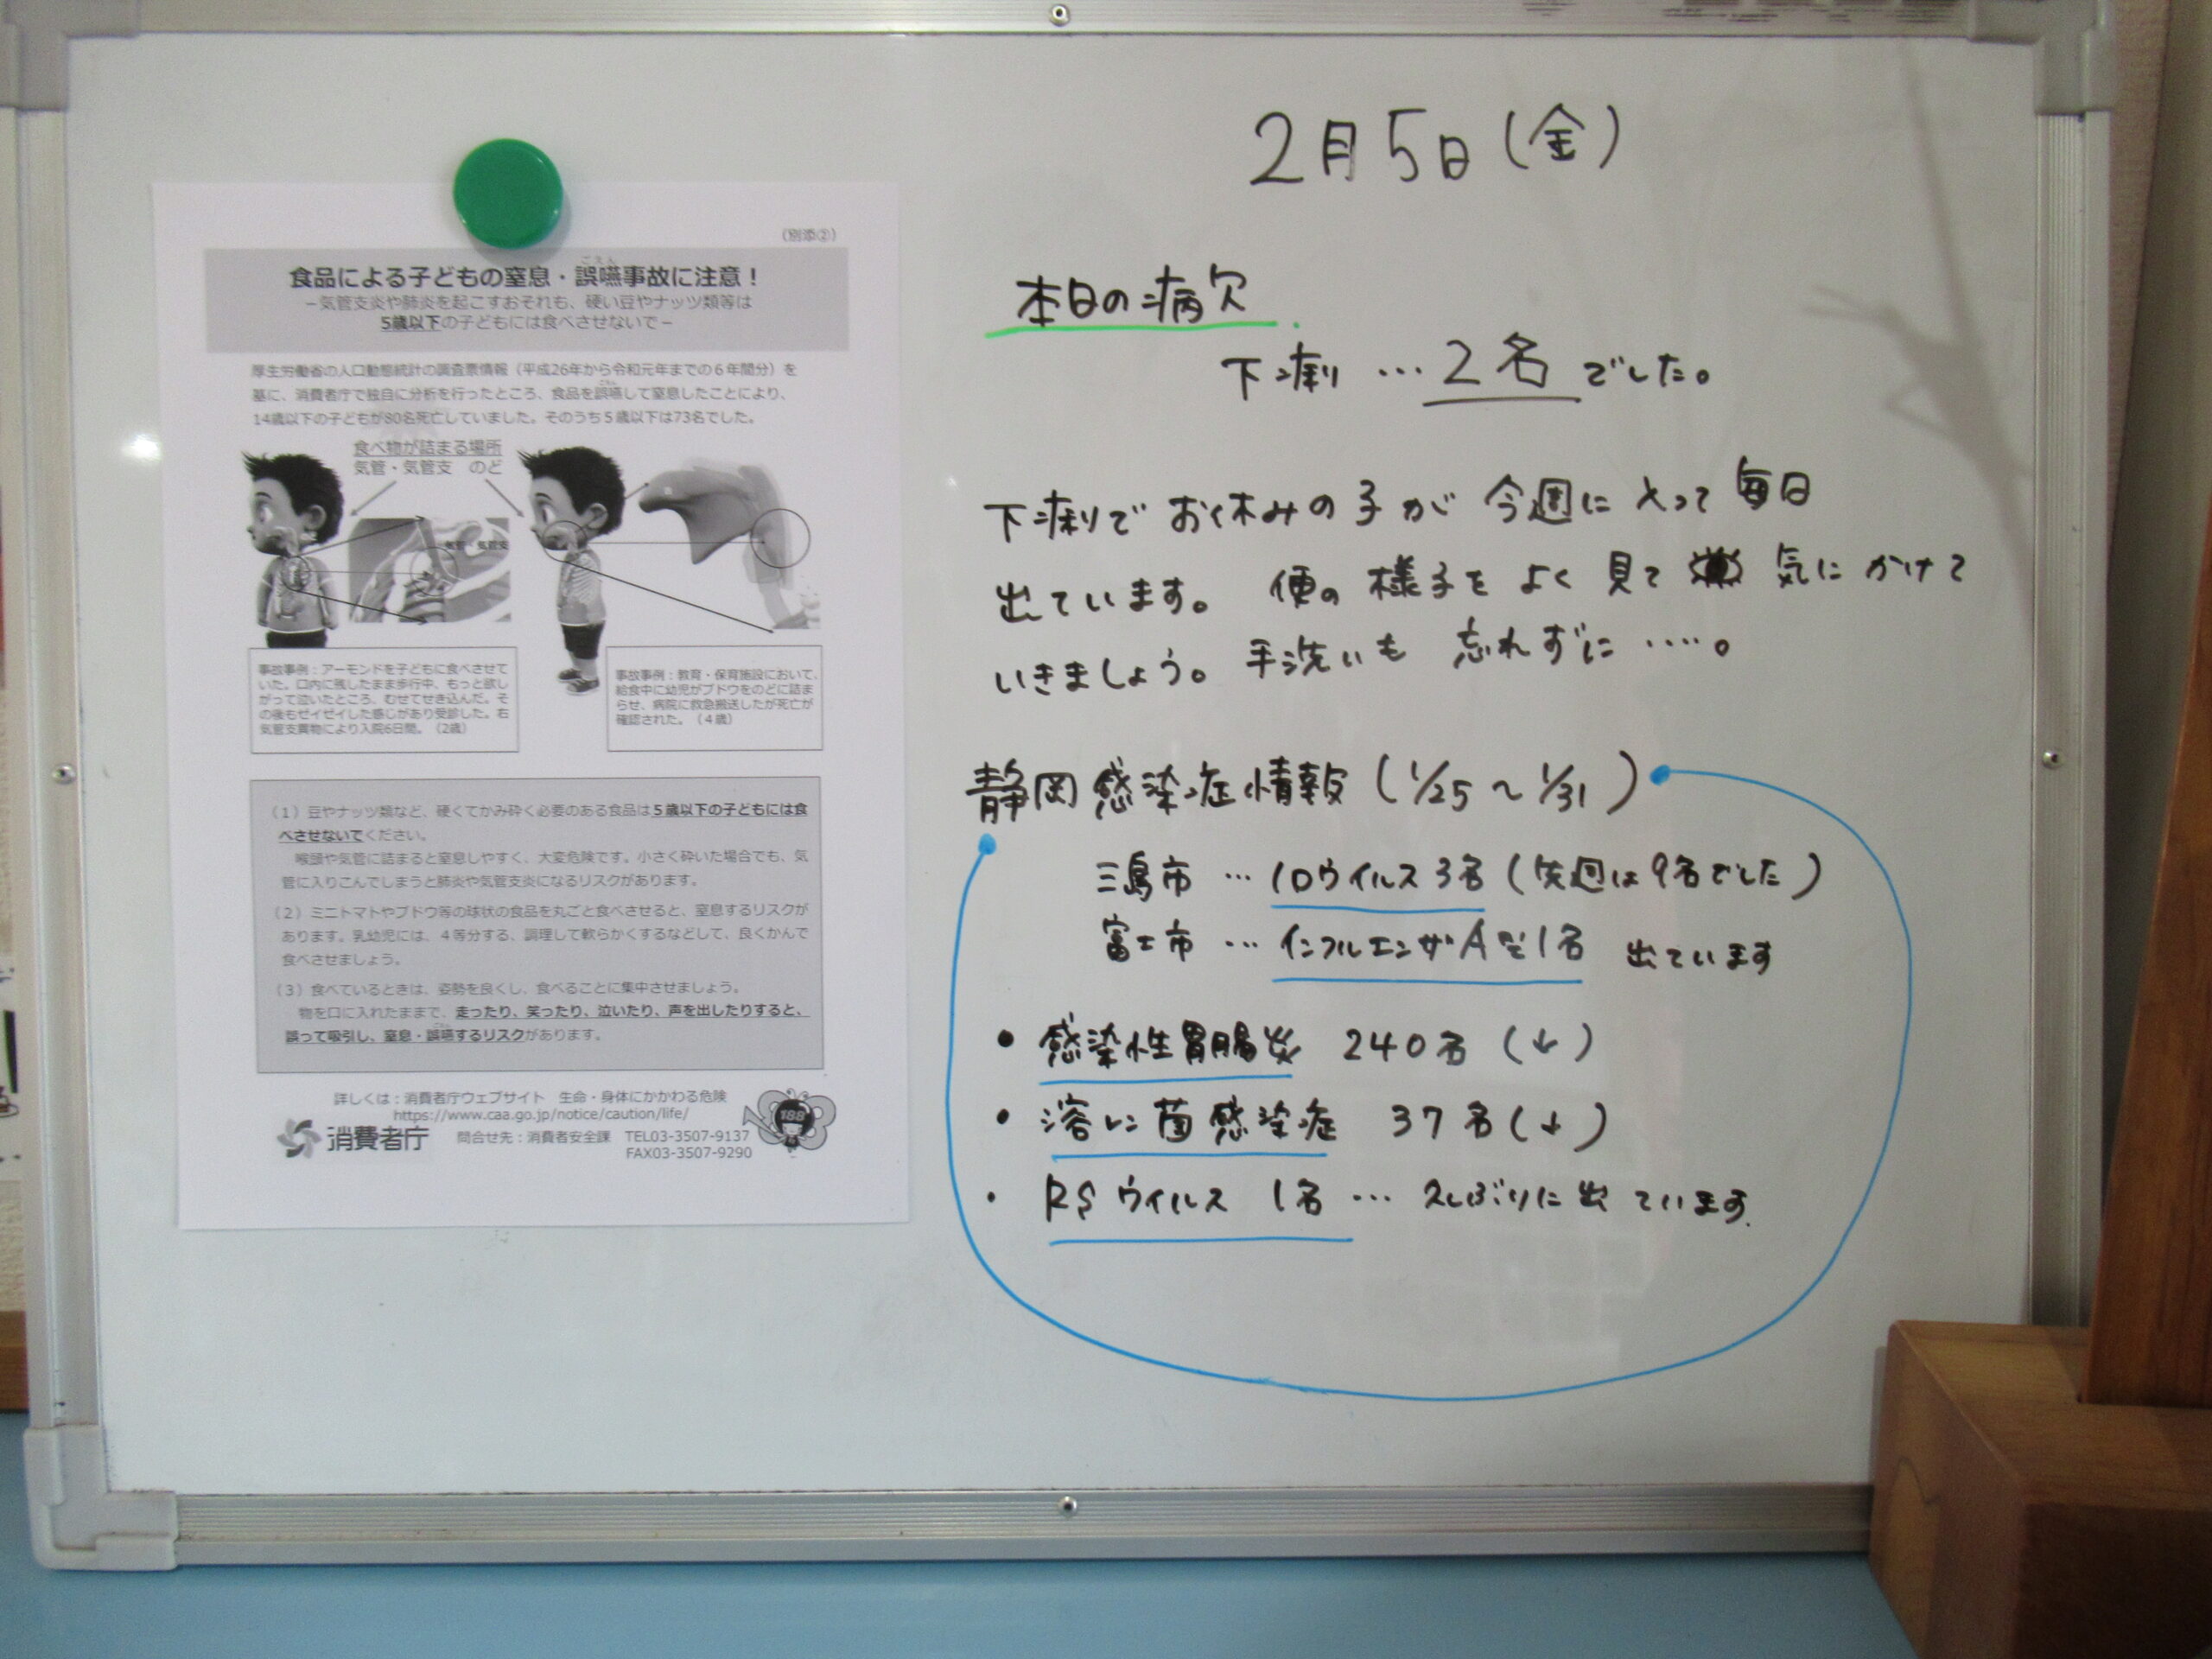 (別添②)
食品による子どもの窒息・誤嚥事故に注意！
ごえん
－気管支炎や肺炎を起こすおそれも、硬い豆やナッツ類等は
5歳以下の子どもには食べさせないで－
厚生労働省の人口動態統計の調査票情報（平成26年から令和元年までの６年間分）を
基に、消費者庁で独自に分析を行ったところ、食品を誤嚥して窒息したことにより、
14歳以下の子どもが80名死亡していました。そのうち５歳以下は73名でした。
食べ物が詰まる場所
気管・気管支 のど
気管・気管支
事故事例：アーモンドを子どもに食べさせて
いた。口内に残したまま歩行中、もっと欲し
がって泣いたところ、むせてせき込んだ。そ
の後もゼイゼイした感じがあり受診した。右
気管支異物により入院6日間。（2歳）
事故事例：教育・保育施設において、
給食中に幼児がブドウをのどに詰ま
らせ、病院に救急搬送したが死亡が
確認された。（４歳）
（1）豆やナッツ類など、硬くてかみ砕く必要のある食品は５歳以下の子どもには食
べさせないでください。
喉頭や気管に詰まると窒息しやすく、大変危険です。小さく砕いた場合でも、気
管に入りこんでしまうと肺炎や気管支炎になるリスクがあります。
（2）ミニトマトやブドウ等の球状の食品を丸ごと食べさせると、窒息するリスクが
あります。乳幼児には、４等分する、調理して軟らかくするなどして、良くかんで
食べさせましょう。
（3）食べているときは、姿勢を良くし、食べることに集中させましょう。
物を口に入れたままで、走ったり、笑ったり、泣いたり、声を出したりすると、
誤って吸引し、窒息・誤嚥するリスクがあります。
詳しくは：消費者庁ウェブサイト 生命・身体にかかわる危険
https://www.caa.go.jp/notice/caution/life/
消費者庁 問合せ先：消費者安全課 TEL03-3507-9137
FAX03-3507-9290
188
2月5日(金)
本日の病欠
下痢 …2名 でした。
下痢で お休みの子が 今週に入って毎日
出ています。 便の様子を よく見て 気にかけて
いきましょう。手洗いも 忘れずに ‥‥。
静岡感染症情報 (1/25～1/31)
三島市 … ロウイルス3名 (先週は9名でした)
富士市 … インフルエンザA で1名 出ています
• 感染性胃腸炎 240名 (↓)
• 溶レン菌感染症 37名(↓)
• RSウイルス 1名 … 久しぶりに出ています.